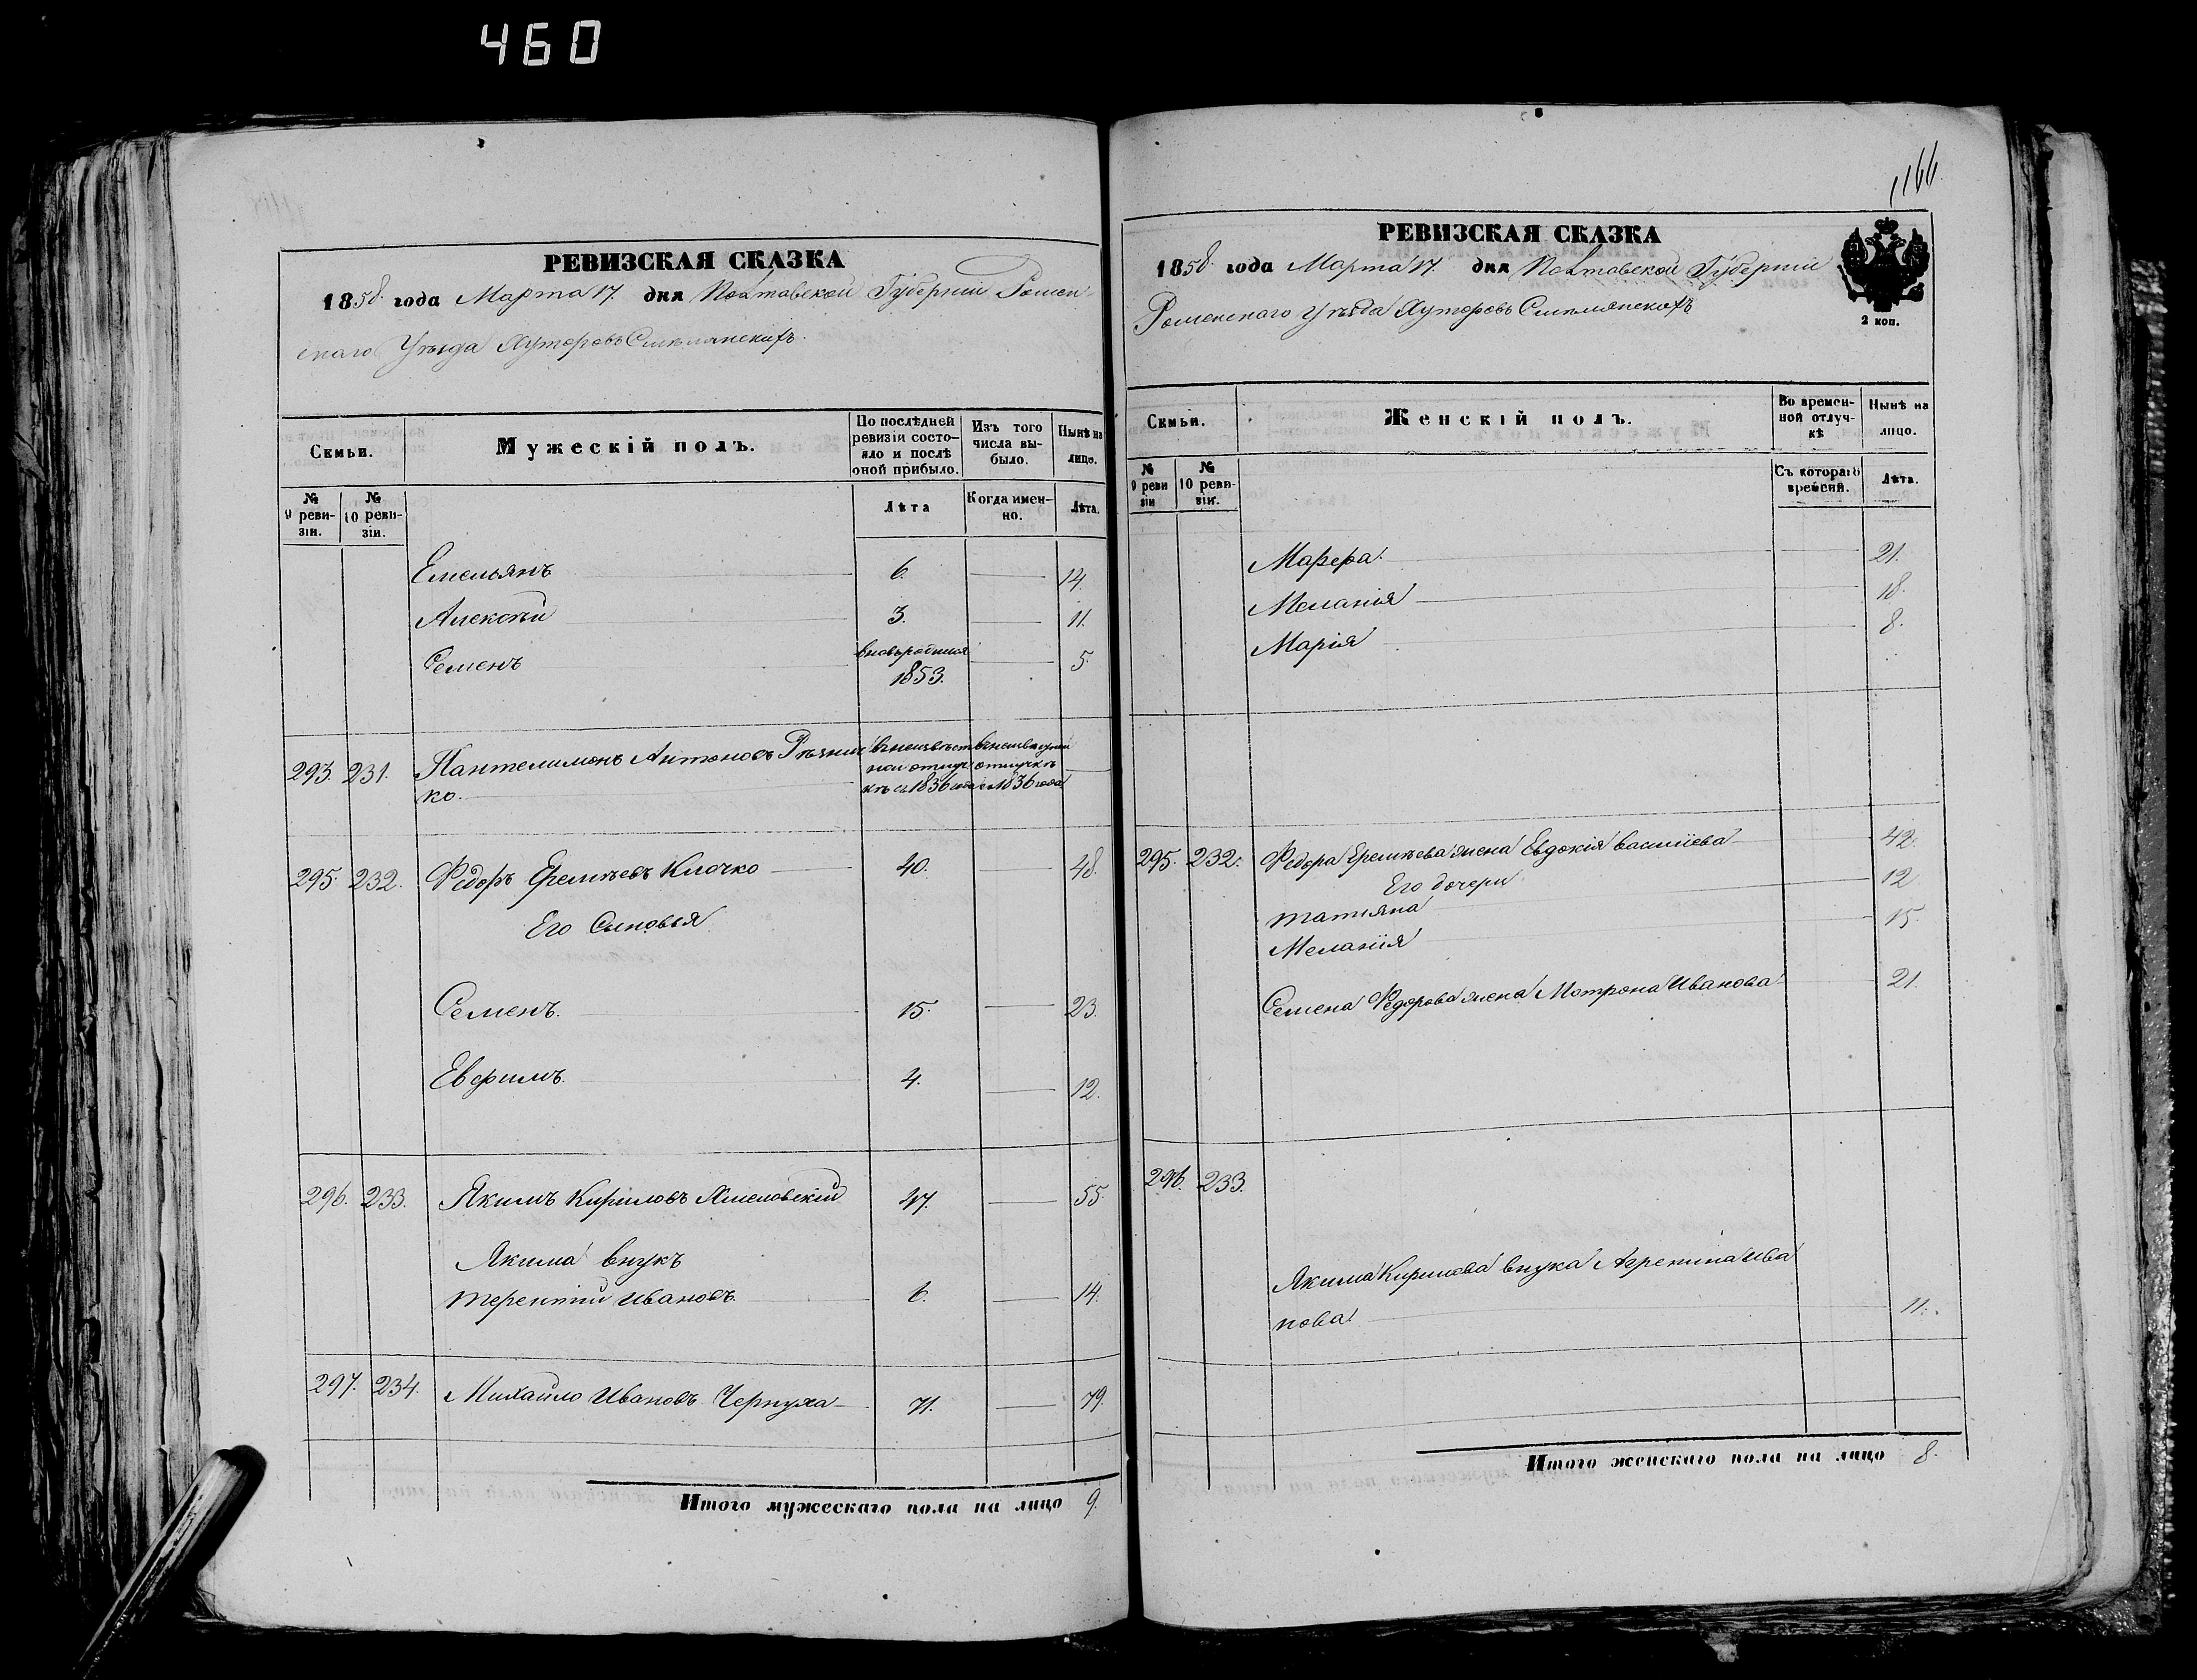 460
1166
РЕВИЗСКАЯ СКАЗКА
1858 года Марта 17. дня Полтавской Губерніи Ромен-
скаго Уѣзда Хуторовъ Смѣлянскихъ.
Семьи.
Мужескій полъ.
По послѣдней ревизіи состояло и послѣ оной прибыло.
Изъ того числа выбыло.
Нынѣ на лицо.
№ 9 ревизіи.
№ 10 ревизіи.
Лѣта
Когда именно.
Лѣта.
Емельянъ 6. 14.
Алексѣй 3. 11.
Семенъ вновьрожден 1853. 5.
293. 231. Пантелимонъ Антоновъ
ко. съ 1836 года съ 1836 года
295. 232. Федоръ Еремѣевъ Клочко 40. 48.
Его Сыновья
Семенъ. 15. 23.
Евфимъ. 4. 12.
296. 233. Якимъ Кириловъ 47. 55.
Якима внукъ
Терентій Ивановъ. 6. 14.
297. 234. Михайло Ивановъ Чернуха 71. 79.
Итого мужескаго пола на лицо 9.
РЕВИЗСКАЯ СКАЗКА
1858 года Марта 17. дня Полтавской Губерніи
Роменскаго Уѣзда Хуторовъ Смѣлянскихъ
2 коп.
Семьи.
Женскій полъ.
Во временной отлучкѣ
Нынѣ на лицо.
№ 9 ревизіи
№ 10 ревизіи.
Съ котораго времени.
Лѣта.
21.
Меланія 18.
Марія 8.
295. 232. Федора Еремѣева жена Евдокія Васильева 42.
Его дочери 12.
Татіяна 15.
Меланія
Семена Федорова жена Мотрона Иванова 21.
296. 233.
Якима Кирилова внука Агрепина Ива
нова 11.
Итого женскаго пола на лицо 8.